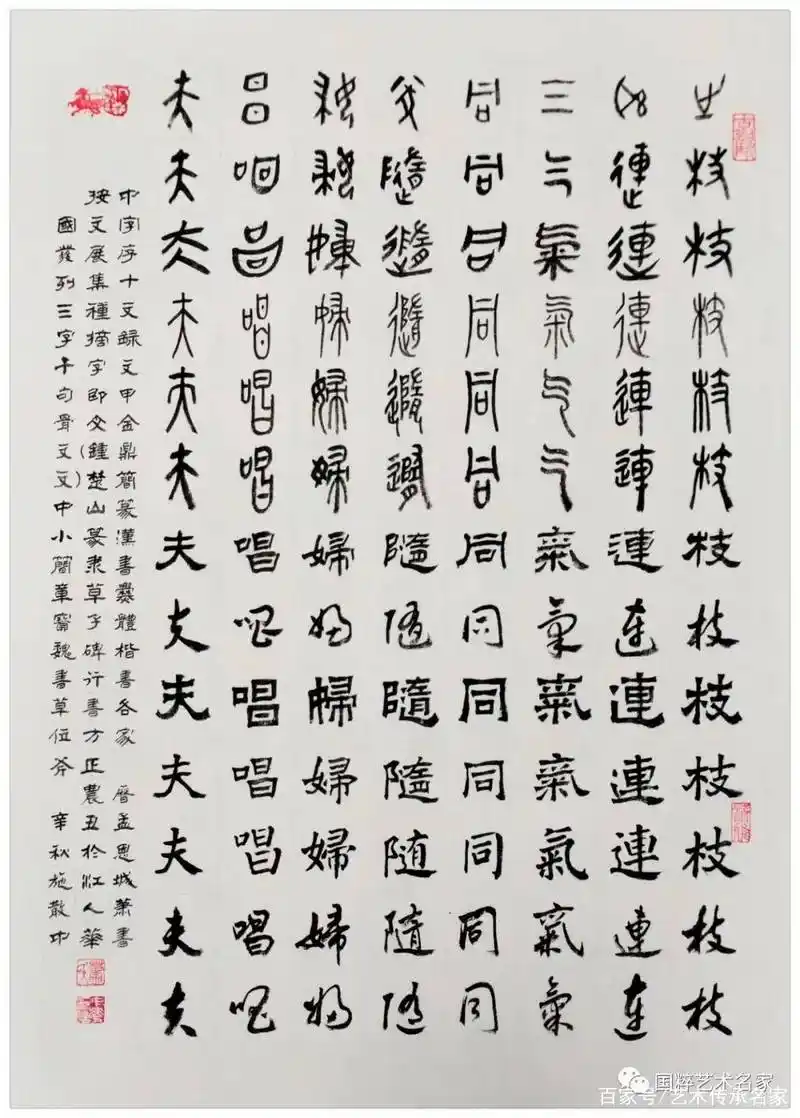 枝枝枝枝枝枝枝枝枝枝枝枝枝
連連連連連連連連連連連連連
氣氣氣氣气气氣氣氣氣氣氣氣
同同同同同同同同同同同同同
隨隨隨隨隨隨隨隨隨隨随隨隨
婦婦婦婦婦婦婦婦婦婦婦婦婦
唱唱唱唱唱唱唱唱唱唱唱唱唱
夫夫夫夫夫夫夫夫夫夫夫夫夫
中字序十文録文甲金鼎簡篆漢書爨體楷書各家 曆孟恩城蕭書
按文展集種摘字即文(鍾)楚山篆隶草子碑行書方正農丑於江人華
國發列三字千句骨文文中小簡章魏書草位斧 辛秋施散中
国粹艺术名家
百家号/艺术传承名家